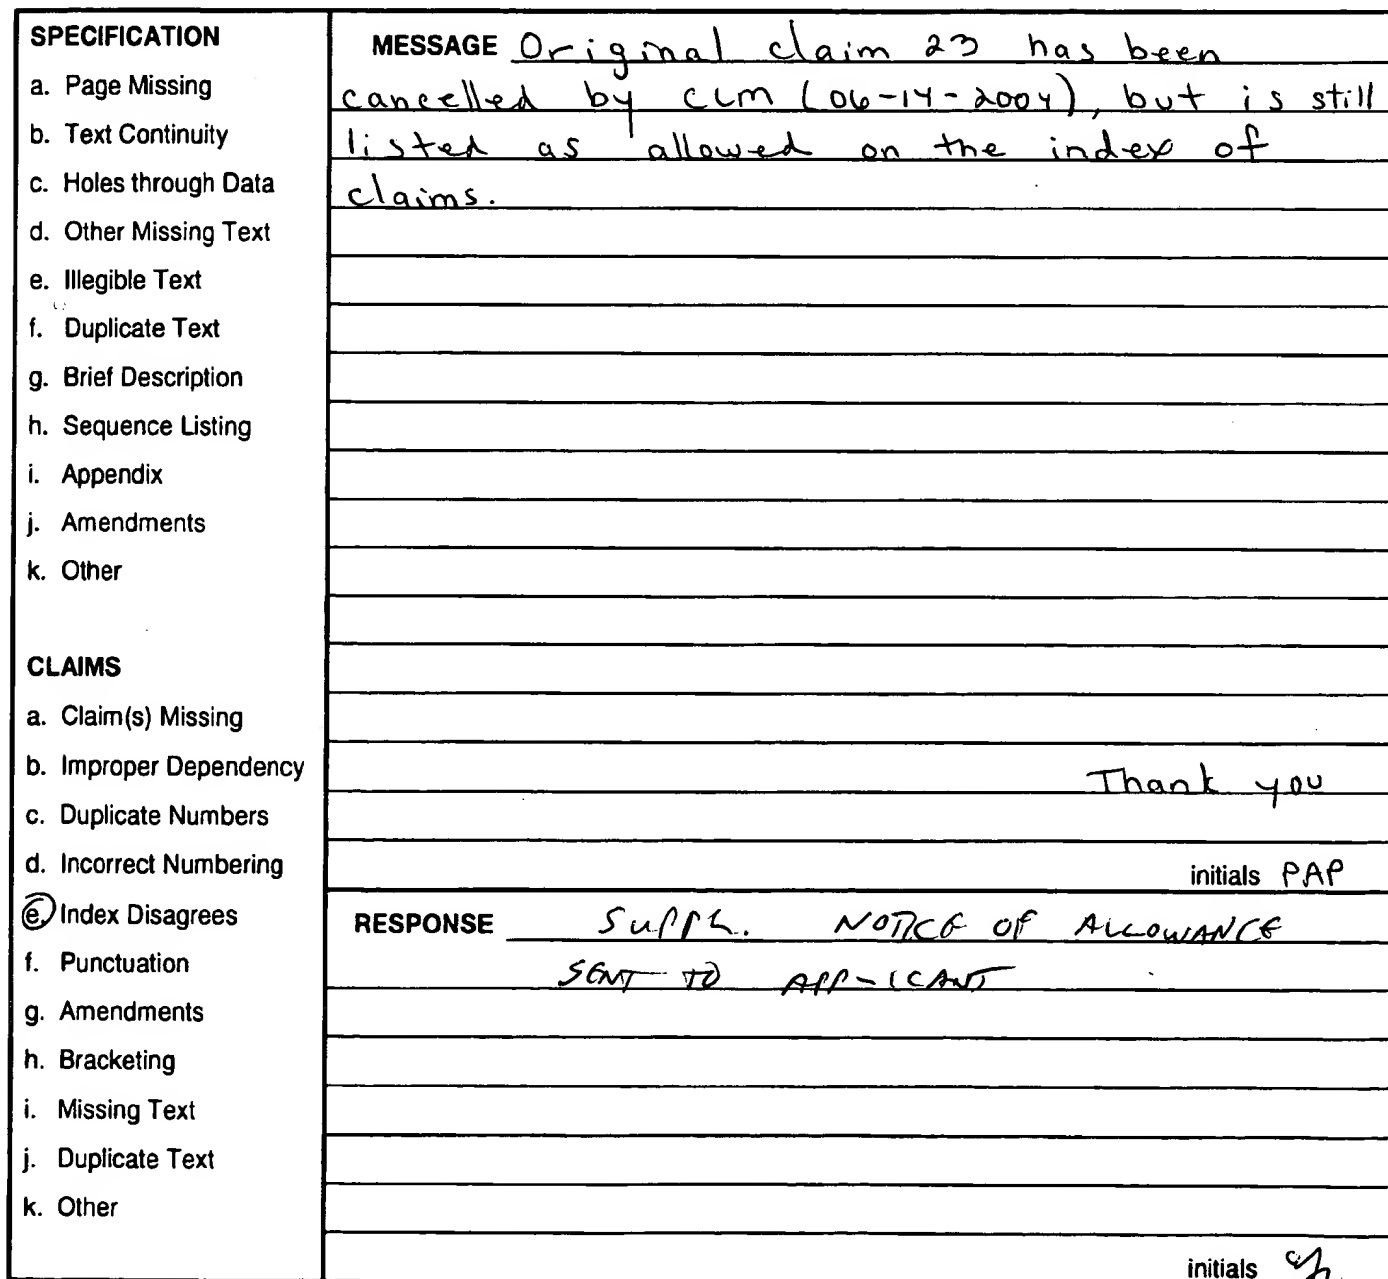 SPECIFICATION
a. Page Missing
b. Text Continuity
c. Holes through Data
d. Other Missing Text
e. Illegible Text
f. Duplicate Text
g. Brief Description
h. Sequence Listing
i. Appendix
j. Amendments
k. Other
CLAIMS
a. Claim(s) Missing
b. Improper Dependency
c. Duplicate Numbers
d. Incorrect Numbering
e. Index Disagrees
f. Punctuation
g. Amendments
h. Bracketing
i. Missing Text
j. Duplicate Text
k. Other
MESSAGE Original claim 23 has been
cancelled by CLM (06-14-2004), but is still
listed as allowed on the index of
claims.
Thank you
initials PAP
RESPONSE SUPPL. NOTICE OF ALLOWANCE
SENT TO APPLICANT
initials